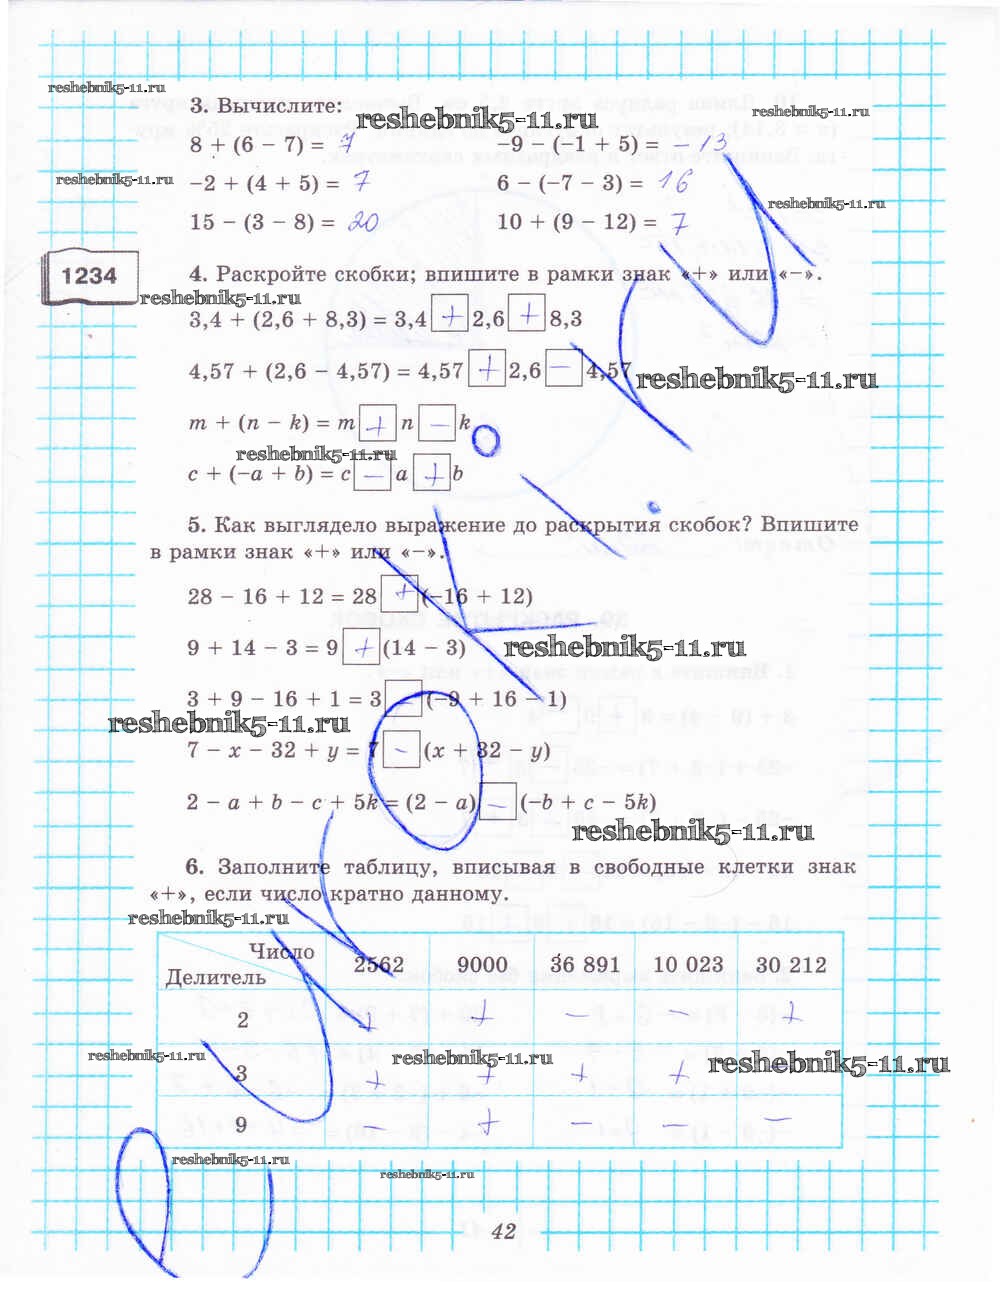 reshebnik5-11.ru
3. Вычислите:
reshebnik5-11.ru
reshebnik5-11.ru
8 + (6 − 7) = 7
−9 − (−1 + 5) = −13
reshebnik5-11.ru
−2 + (4 + 5) = 7
6 − (−7 − 3) = 16
reshebnik5-11.ru
15 − (3 − 8) = 20
10 + (9 − 12) = 7
1234
4. Раскройте скобки; впишите в рамки знак «+» или «−».
reshebnik5-11.ru
3,4 + (2,6 + 8,3) = 3,4 + 2,6 + 8,3
4,57 + (2,6 − 4,57) = 4,57 + 2,6 − 4,57
reshebnik5-11.ru
m + (n − k) = m + n − k
reshebnik5-11.ru
c + (−a + b) = c − a + b
5. Как выглядело выражение до раскрытия скобок? Впишите
в рамки знак «+» или «−».
28 − 16 + 12 = 28 + (−16 + 12)
9 + 14 − 3 = 9 + (14 − 3)
reshebnik5-11.ru
3 + 9 − 16 + 1 = 3 − (−9 + 16 − 1)
reshebnik5-11.ru
7 − x − 32 + y = 7 − (x + 32 − y)
2 − a + b − c + 5k = (2 − a) − (−b + c − 5k)
reshebnik5-11.ru
6. Заполните таблицу, вписывая в свободные клетки знак
«+», если число кратно данному.
reshebnik5-11.ru
Число
Делитель
2562 9000 36 891 10 023 30 212
2 + + − − +
reshebnik5-11.ru
reshebnik5-11.ru
reshebnik5-11.ru
3 + + + +
9 − + − − −
reshebnik5-11.ru
reshebnik5-11.ru
42